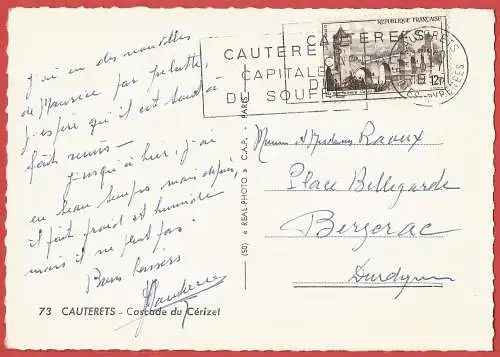 j'ai eu des nouvelles
de Maurice par
j'espère qu'il est tout à
fait remis -
jusqu'à hier, j'ai
eu beau temps mais depuis,
il fait froid et humide
mais il ne pleut pas.
Bons baisers
73 CAUTERETS - Cascade du Cérizet
(SO) REAL-PHOTO C.A.P. - PARIS
CAUTERETS
CAUTERE
CAPITALE
DU SOUFRE
REPUBLIQUE FRANÇAISE
12F
CAUTERETS
Monsieur et Madame Raoux
Place Bellegarde
Bergerac
Dordogne